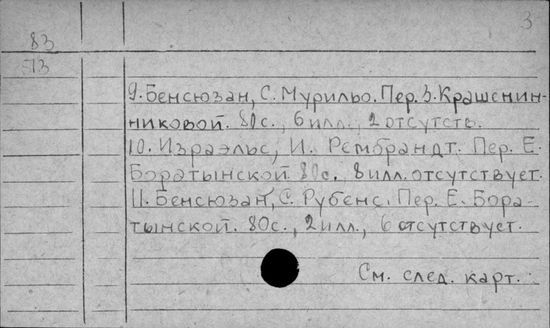 3
83
73
9. Бенсюзан, С. Мурильо. Пер. З. Крашенин-
никовой. 80с., 6 илл., 2 отсутств.
10. Израэльс, И. Рембрандт. Пер. Е.
Боратынской 80с. 8 илл. отсутствует.
11. Бенсюзан, С. Рубенс. Пер. Е. Бора-
тынской. 80с., 2 илл., 6 отсутствует.
См. след. карт.